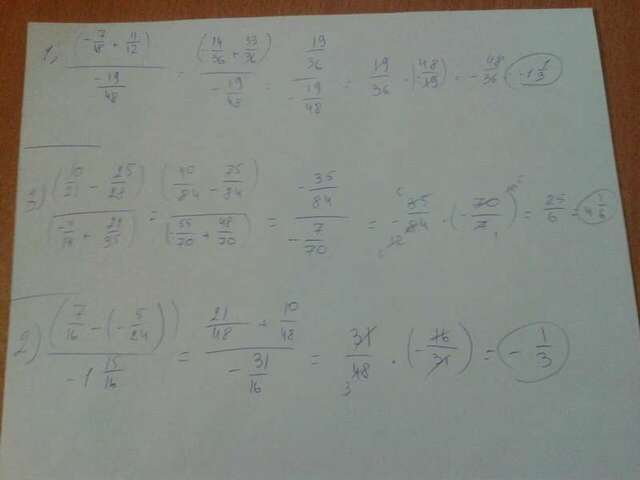 1) (-7/18 + 11/12) / (-19/48) = (-14/36 + 33/36) / (-19/48) = (19/36) / (-19/48) = 19/36 · (-48/19) = -48/36 = -1 1/3
3) (10/21 - 25/28) / ( + ) = (40/84 - 75/84) / (-55/70 + 48/70) = (-35/84) / (-7/70) = -35/84 · (-70/7) = 25/6 = 4 1/6
2) (7/16 - (-5/24)) / (-1 15/16) = (21/48 + 10/48) / (-31/16) = 31/48 · (-16/31) = -1/3